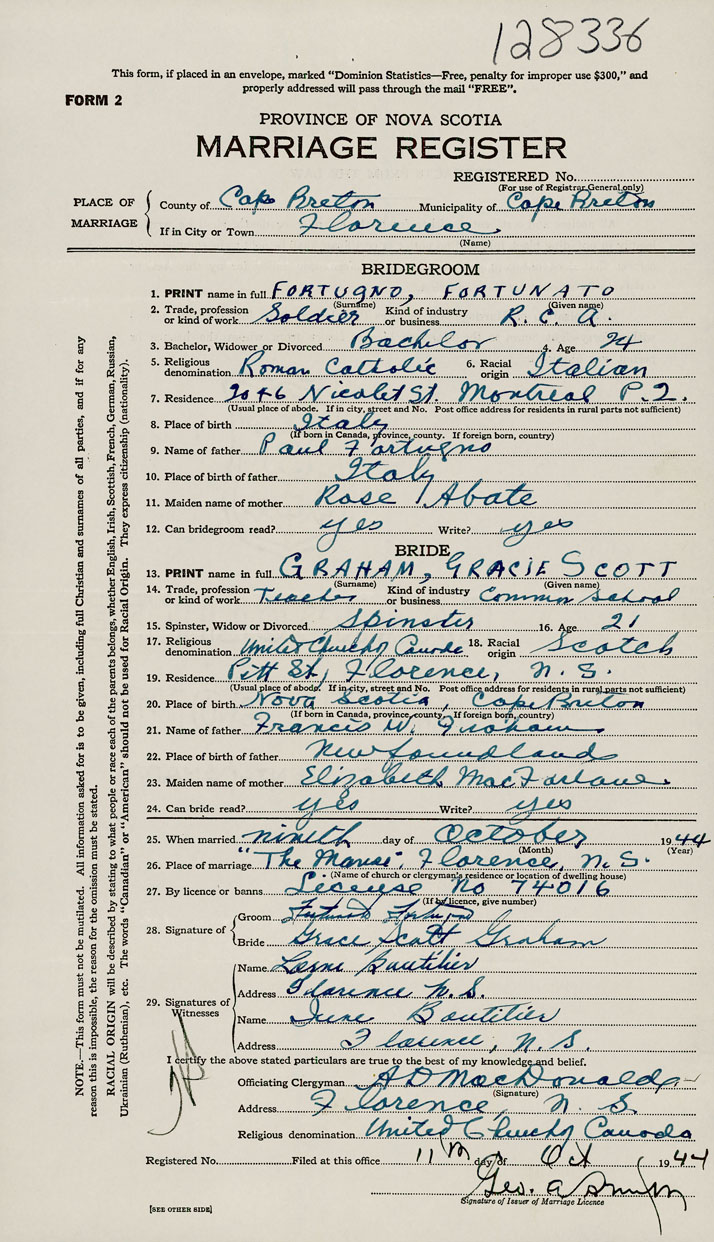 128336
This form, if placed in an envelope, marked "Dominion Statistics—Free, penalty for improper use $300," and
properly addressed will pass through the mail "FREE".
FORM 2
PROVINCE OF NOVA SCOTIA
MARRIAGE REGISTER
REGISTERED No.
(For use of Registrar General only)
PLACE OF MARRIAGE
County of Cape Breton Municipality of Cape Breton
If in City or Town Florence
(Name)
BRIDEGROOM
1. PRINT name in full FORTUGNO, FORTUNATO
(Surname) (Given name)
2. Trade, profession or kind of work Soldier Kind of industry or business R. C. A.
3. Bachelor, Widower or Divorced Bachelor 4. Age 24
5. Religious denomination Roman Catholic 6. Racial origin Italian
7. Residence 2046 Nicolet St. Montreal P.Q.
(Usual place of abode. If in city, street and No. Post office address for residents in rural parts not sufficient)
8. Place of birth Italy
(If born in Canada, province, county. If foreign born, country)
9. Name of father Paul Fortugno
10. Place of birth of father Italy
11. Maiden name of mother Rose Abate
12. Can bridegroom read? yes Write? yes
BRIDE
13. PRINT name in full GRAHAM, GRACIE SCOTT
(Surname) (Given name)
14. Trade, profession or kind of work Teacher Kind of industry or business Common School
15. Spinster, Widow or Divorced Spinster 16. Age 21
17. Religious denomination United Church of Canada 18. Racial origin Scotch
19. Residence Pitt St., Florence, N. S.
(Usual place of abode. If in city, street and No. Post office address for residents in rural parts not sufficient)
20. Place of birth Nova Scotia, Cape Breton
(If born in Canada, province, county. If foreign born, country)
21. Name of father Francis W. Graham
22. Place of birth of father Newfoundland
23. Maiden name of mother Elizabeth MacFarlane
24. Can bride read? yes Write? yes
25. When married nineth day of October 1944
(Month) (Year)
26. Place of marriage "The Manse" Florence, N.S.
(Name of church or clergyman's residence or location of dwelling house)
27. By licence or banns License No 74016
(If by licence, give number)
28. Signature of
Groom Fortunato Fortugno
Bride Grace Scott Graham
29. Signatures of Witnesses
Name Lorne Boutilier
Address Florence N.S.
Name June Boutilier
Address Florence, N. S.
I certify the above stated particulars are true to the best of my knowledge and belief.
Officiating Clergyman A D MacDonald
(Signature)
Address Florence N. S.
Religious denomination United Church of Canada
Registered No. Filed at this office 11th day of Oct 1944
Geo. A
Signature of Issuer of Marriage Licence
[SEE OTHER SIDE]
NOTE.—This form must not be mutilated. All information asked for is to be given, including full Christian and surnames of all parties, and if for any
reason this is impossible, the reason for the omission must be stated.
RACIAL ORIGIN will be described by stating to what people or race each of the parents belongs, whether English, Irish, Scottish, French, German, Russian,
Ukrainian (Ruthenian), etc. The words "Canadian" or "American" should not be used for Racial Origin. They express citizenship (nationality).